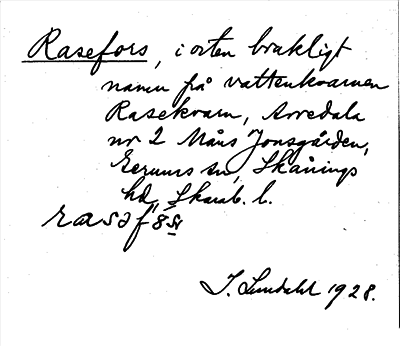 Rasefors, i orten brukligt
namn på vattenkvarnen
Rasekvarn, Arvedala
nr 2 Måns Jonsgården,
Gerums sn, Skånings
hd, Skarab. l.
I. Lundahl 1928.